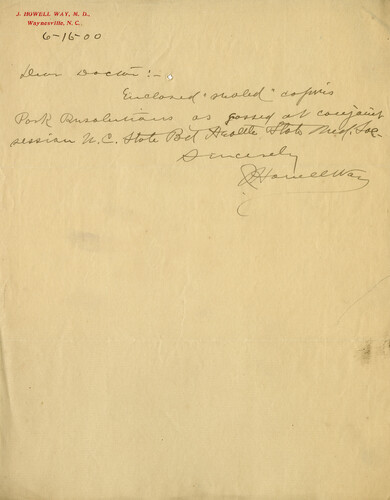 J. HOWELL WAY, M. D.,
Waynesville, N. C.
6-16-00
Dear Doctor:-
Enclosed "sealed" copies
Park Resolutions as passed at conjoint
session N.C. State Bd Health State Med. Soc-
Sincerely
J Howell Way